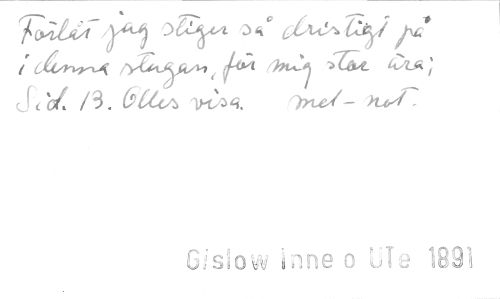 Förlåt jag stiger så dristigt på
i denna stugan, för mig stor ära;
Sid. 13. Olles visa. mel-not.
Gislow Inne o UTe 1891